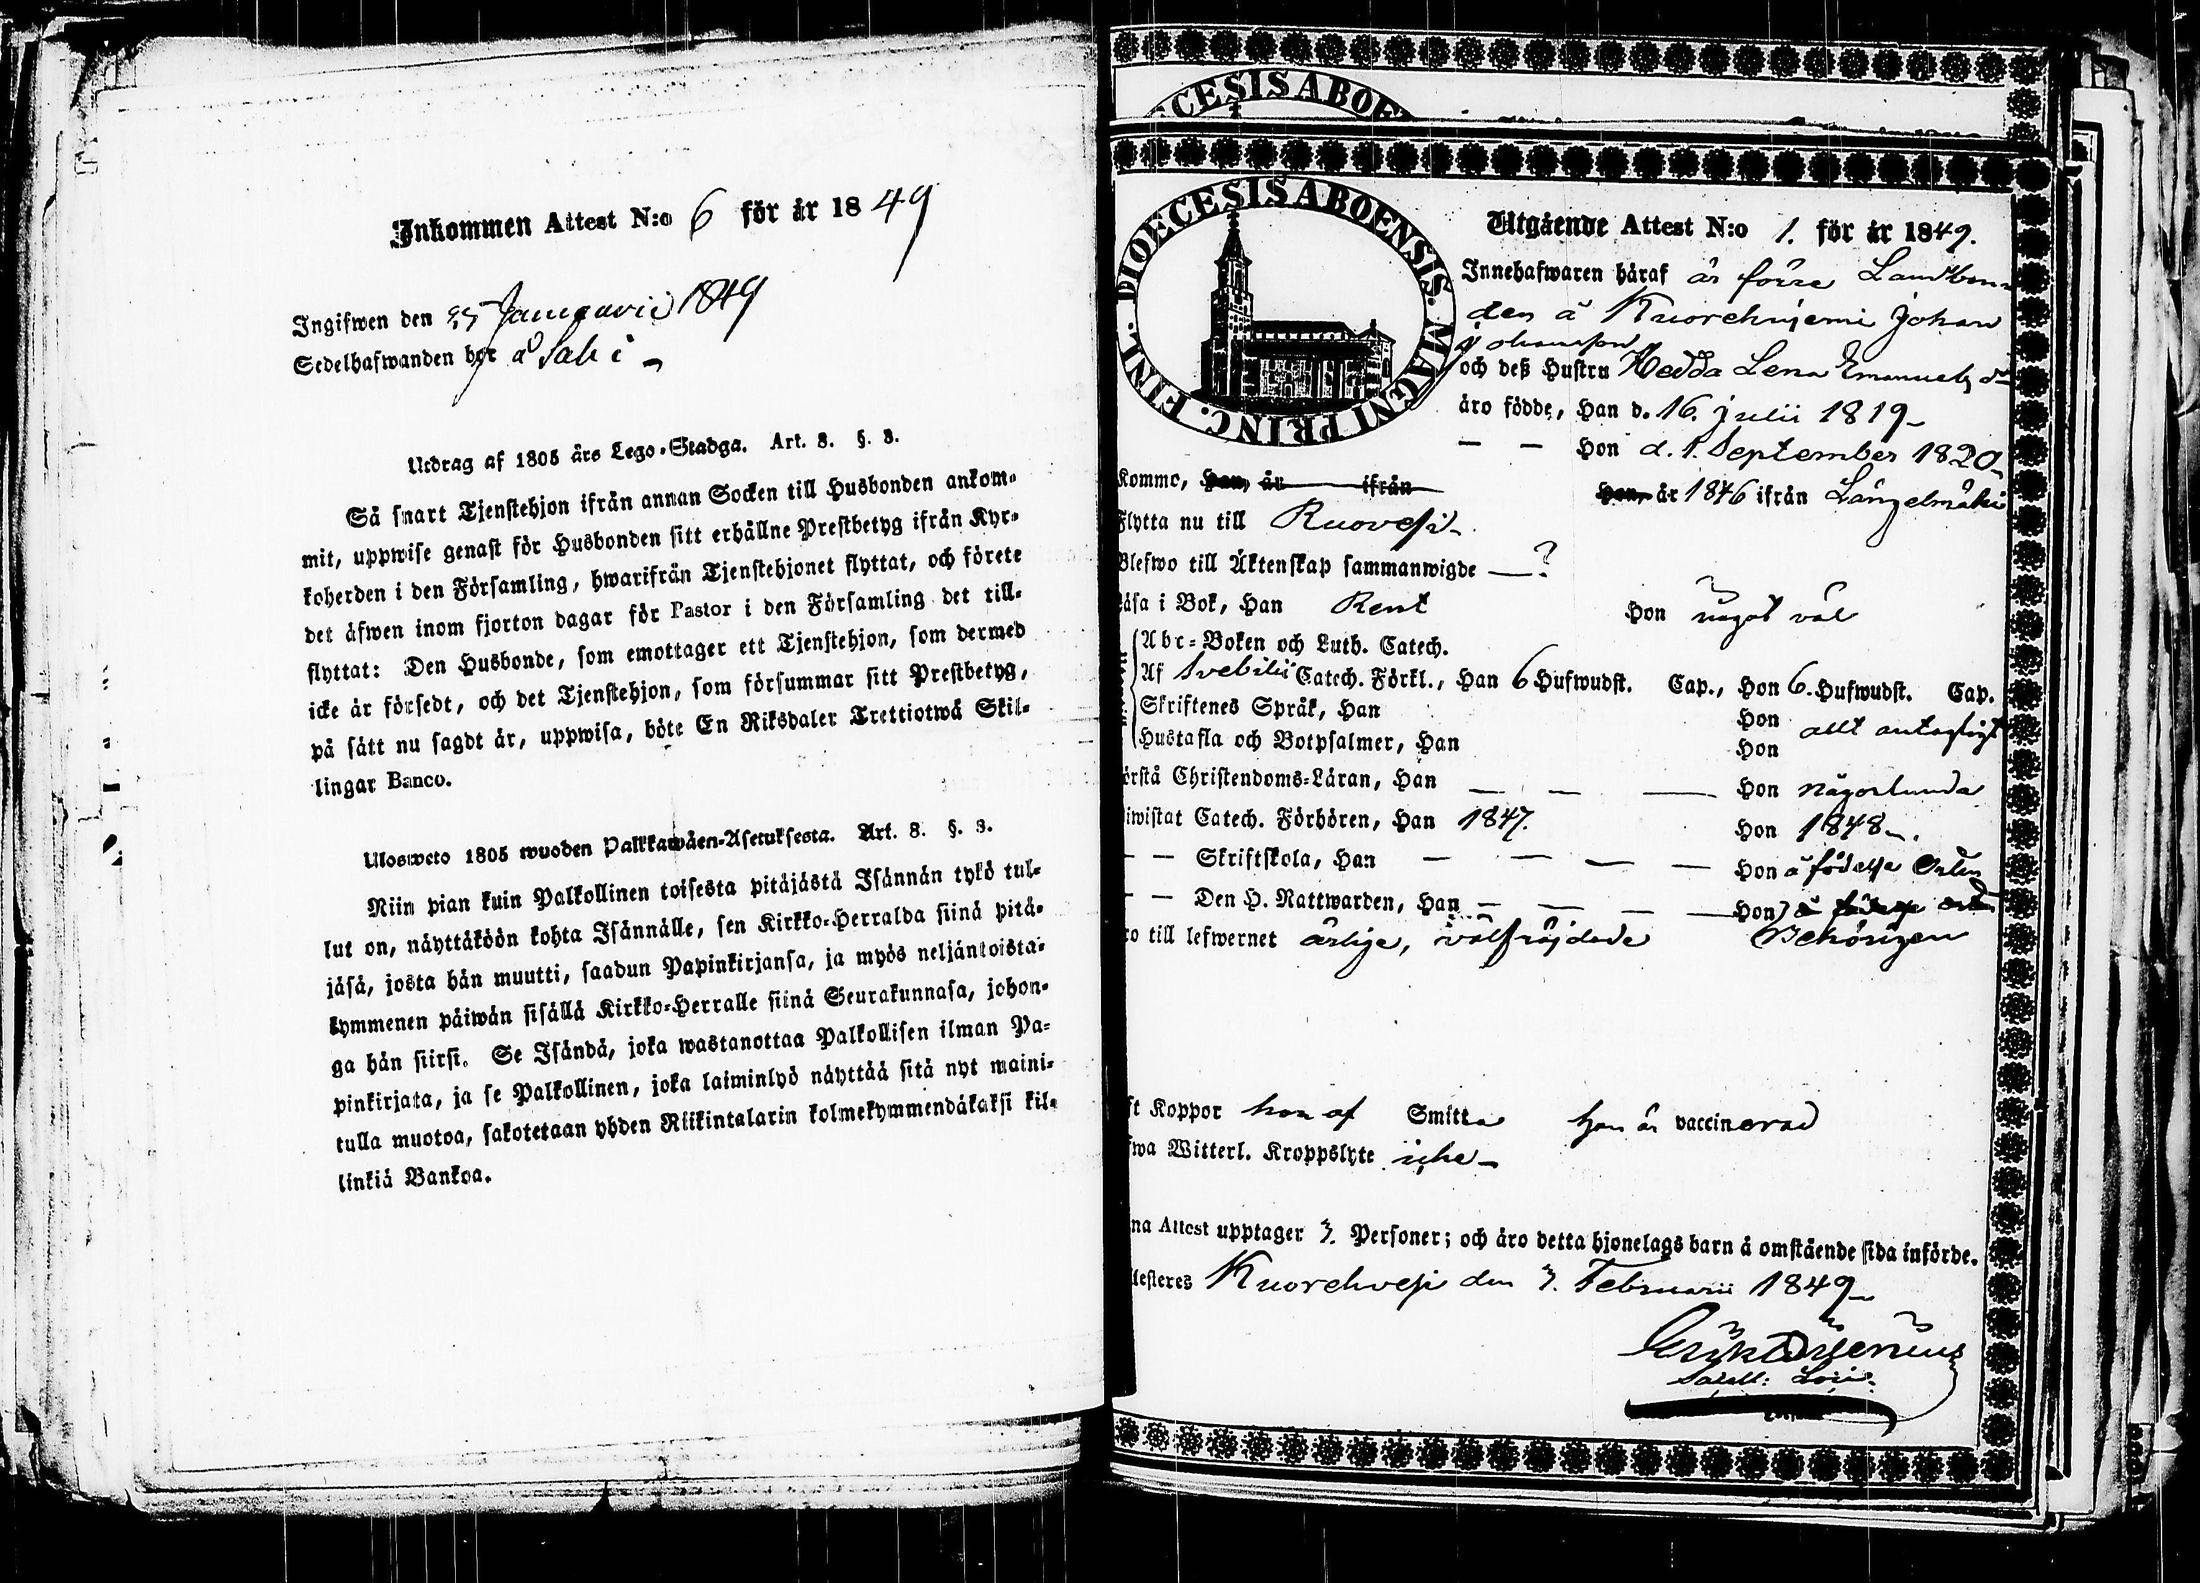 Inkommen Attest N:o 6 för år 1849
Ingifwen den Januarii 1849
Sedelhafwanden bor å Sali
Utdrag af 1805 års Lego-Stadga. Art. 8. §. 3.
Så snart Tjenstehjon ifrån annan Socken till Husbonden ankom-
mit, uppwise genast för Husbonden sitt erhållne Prestbetyg ifrån Kyr-
koherden i den Församling, hwarifrån Tjenstehjonet flyttat, och förete
det äfwen inom fjorton dagar för Pastor i den Församling det till-
flyttat: Den Husbonde, som emottager ett Tjenstehjon, som dermed
icke är försedt, och det Tjenstehjon, som försummar sitt Prestbetyg,
på sätt nu sagdt är, uppwisa, böte En Riksdaler Trettiotwå Skil-
lingar Banco.
Ulosweto 1805 wuoden Palkkawäen-Asetuksesta. Art. 8. §. 3.
Niin pian kuin Palkollinen toisesta pitäjästä Isännän tykö tul-
lut on, näyttäköön kohta Isännälle, sen Kirkko-Herralda siinä pitä-
jäsä, josta hän muutti, saadun Papinkirjansa, ja myös neljäntoista-
kymmenen päiwän sisällä Kirkko-Herralle siinä Seurakunnasa, johon-
ga hän siirsi. Se Isändä, joka wastanottaa Palkollisen ilman Pa-
pinkirjata, ja se Palkollinen, joka laiminlyö näyttää sitä nyt maini-
tulla muotoa, sakotetaan yhden Riikintalarin kolmekymmendäkaksi kil-
linkiä Bankoa.
ECESIS ABOE
DIOECESIS ABOENSIS. MAGNI PRINC. FINL.
Utgående Attest N:o 1. för år 1849.
Innehafwaren häraf är förre Landbon-
den å Kuorehniemi Johan
Johansson
och deß Hustru Hedda Lena Emanuels dr
äro födde, Han d. 16. Julii 1819
— — Hon d. 1. September 1820
Komme, Han, år ifrån Hon, år 1846 ifrån Längelmäki
Flytta nu till Ruovesi
Blefwo till Äktenskap sammanwigde — ?
Läsa i Bok, Han Rent Hon något väl
Abc-Boken och Luth. Catech.
Af Svebilii Catech. Förkl., Han 6 Hufwudst. Cap., Hon 6. Hufwudst. Cap.
Skriftenes Språk, Han Hon allt antagligt
Hustafla och Botpsalmer, Han Hon
örstå Christendoms-Läran, Han — — — Hon någorlunda
iwistat Catech. Förhören, Han 1847. Hon 1848
— — Skriftskola, Han — — — — Hon å födelse Orten
— — Den H. Nattwarden, Han — — — — Hon å födelse orten
ro till lefwernet ärlige, välfräjdade Behörigen
ft Koppor hon af Smitta han är vaccinerad
fwa Witterl. Kroppslyte icke
na Attest upptager 3. Personer; och äro detta hjonelags barn å omstående sida införde.
esteres Kuorehvesi den 3. Februarii 1849